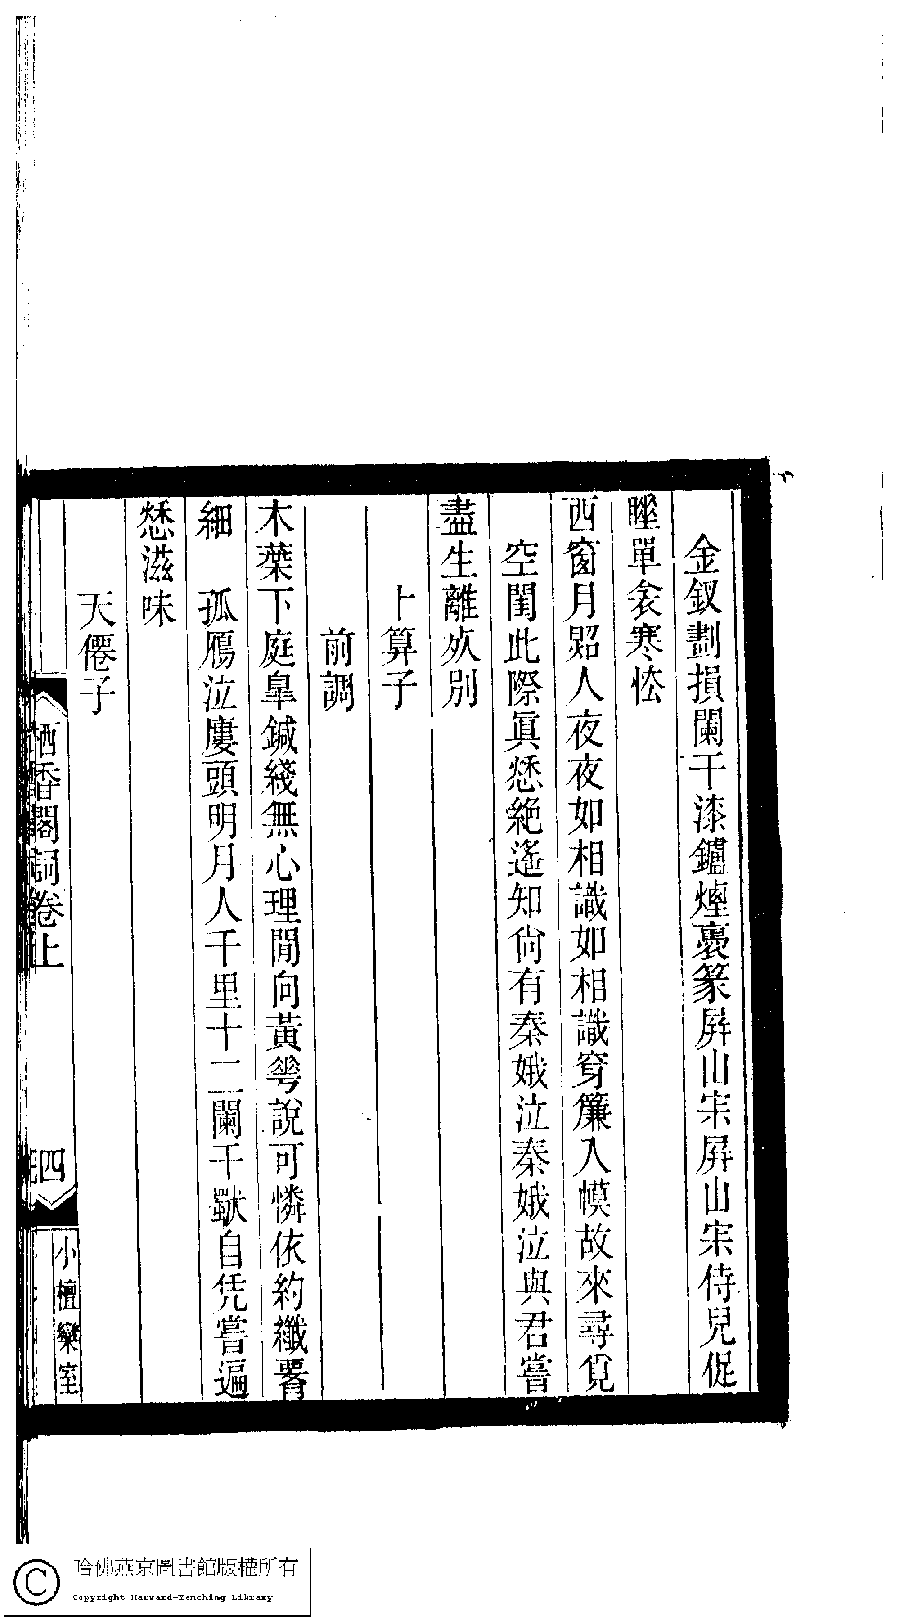 金釵劃損闌干漆鑪煙裊篆屛山宋屛山宋侍兒促
睡單衾寒怯
西窗月炤人夜夜如相識如相識穿簾入幙故來尋覓
空閨此際眞愁絶遙知尙有秦娥泣秦娥泣與君嘗
盡生離死別
卜算子
前調
木葉下庭皐鍼綫無心理閒向黃花說可憐依約纖眉
細　孤鴈泣廔頭明月人千里十二闌干獸自凭嘗遍
愁滋味
天僊子
栖香閣詞卷上
四
小檀欒室
哈佛燕京圖書館版權所有
Copyright Harvard-Yenching Library